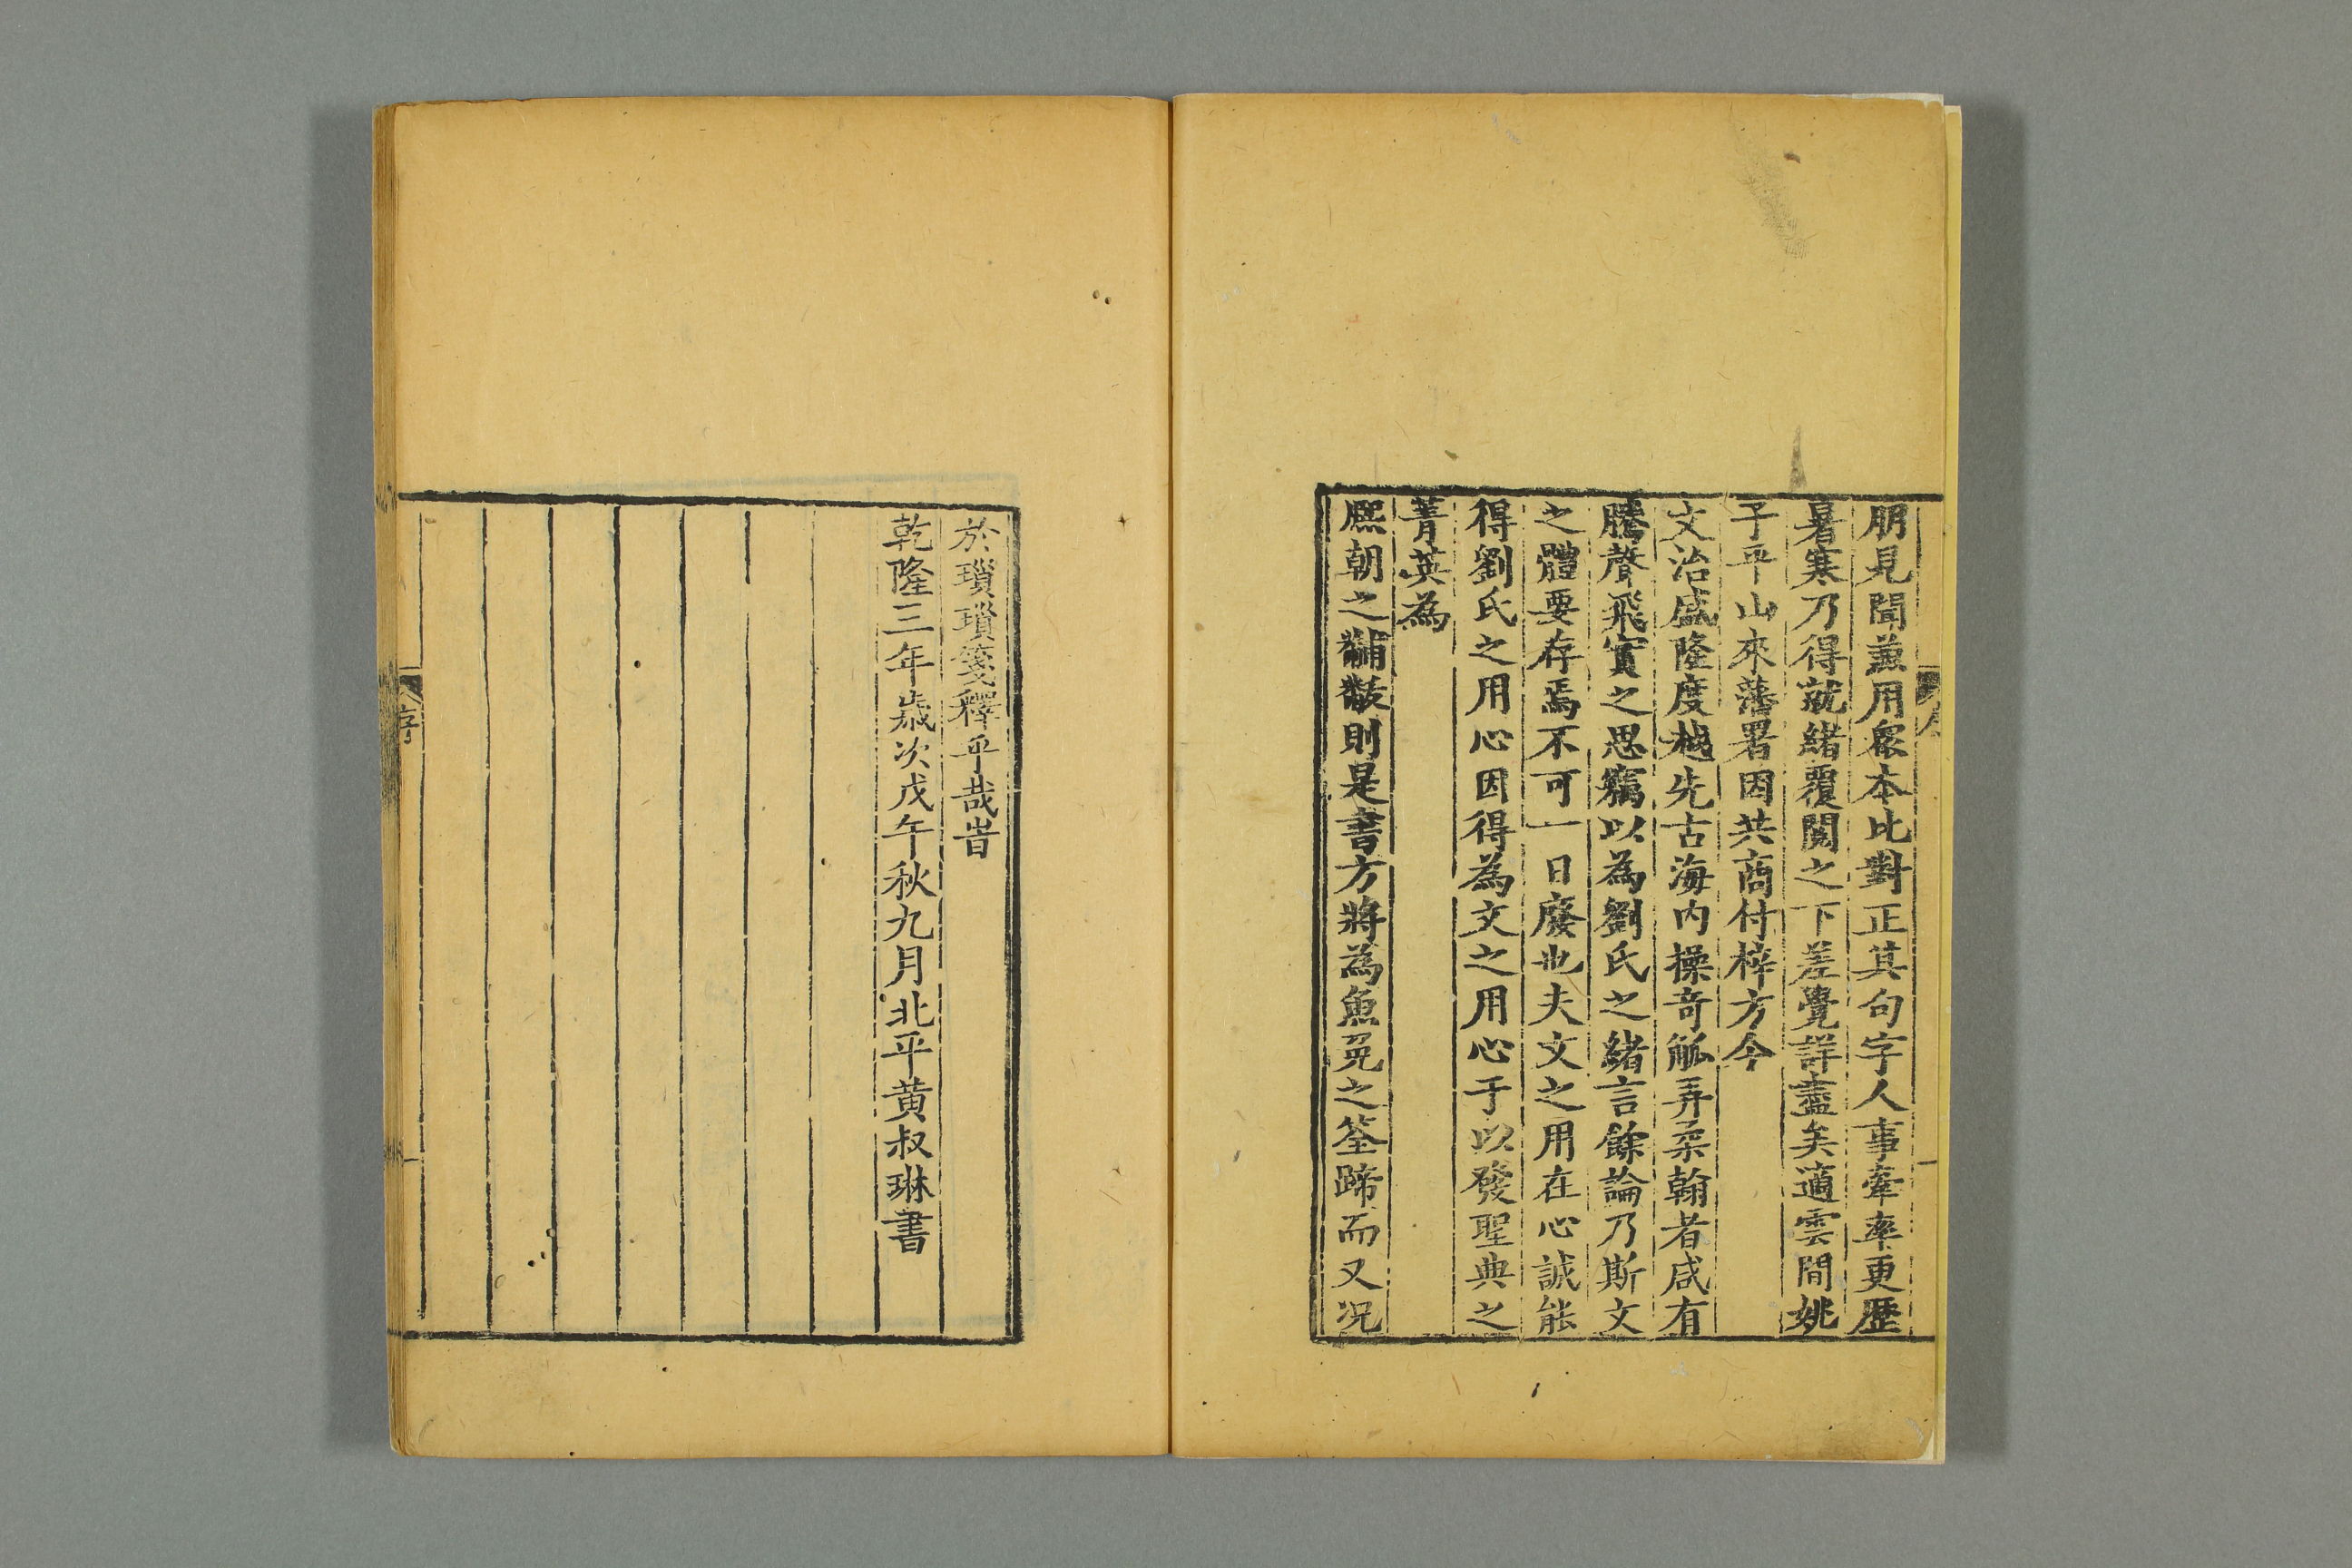 朋見聞兼用衆本比對正其句字人事牽率更歷
暑寒乃得就緒覆閱之下差覺詳盡矣適雲間姚
子平山來藩署因共商付梓方今
文治盛隆度越先古海内操奇觚弄柔翰者咸有
騰聲飛實之思竊以為劉氏之緒言餘論乃斯文
之體要存焉不可一日廢也夫文之用在心誠能
得劉氏之用心因得為文之用心于以發聖典之
菁英為
熈朝之黼黻則是書方將為魚兎之筌蹄而又况
於瑣瑣箋釋乎哉旹
乾隆三年歳次戊午秋九月北平黄叔琳書
序